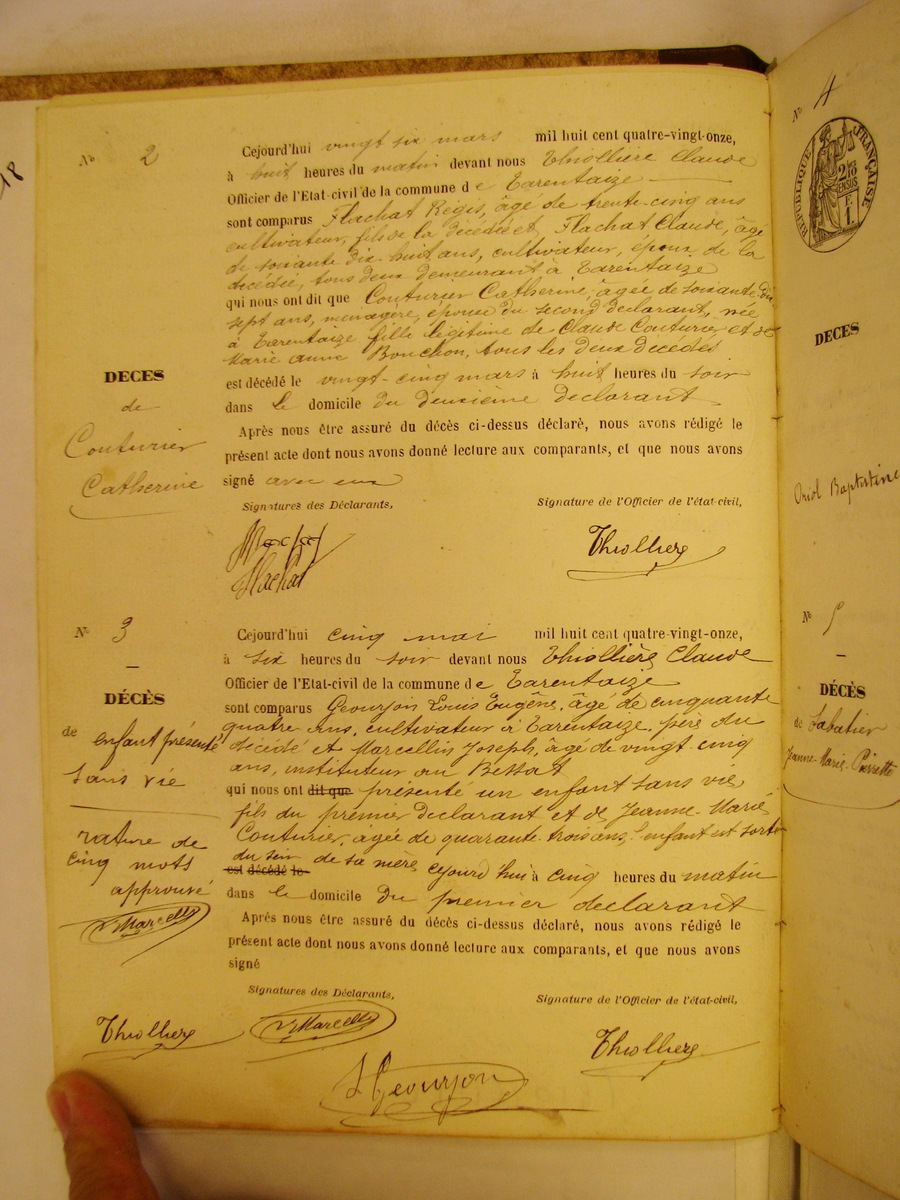 18
N° 2
Cejourd'hui vingt six mars mil huit cent quatre-vingt-onze,
à huit heures du matin devant nous Thiollière Claude
Officier de l'Etat-civil de la commune de Tarentaize
sont comparus Flachat Régis, âgé de trente-cinq ans
cultivateur, fils de la décédée et Flachat Claude, âgé
de soixante dix-huit ans, cultivateur, époux de la
décédée, tous deux demeurant à Tarentaize
qui nous ont dit que Couturier Catherine, âgée de soixante dix
sept ans, ménagère, épouse du second déclarant, née
à Tarentaize fille légitime de Claude Couturier et de
Marie Anne Bonchon, tous les deux décédés
est décédé le vingt-cinq mars à huit heures du soir
dans le domicile du deuxième déclarant
Après nous être assuré du décès ci-dessus déclaré, nous avons rédigé le
présent acte dont nous avons donné lecture aux comparants, et que nous avons
signé avec eux
DECES
de
Couturier
Catherine
Signatures des Déclarants,
Signature de l'Officier de l'état-civil,
Flachat
Flachat
Thiollière
N° 3
DÉCÈS
de enfant présenté
sans vie
rature de
cinq mots
approuvé
Marcellin
Thiollière
Cejourd'hui cinq mai mil huit cent quatre-vingt-onze,
à six heures du soir devant nous Thiollière Claude
Officier de l'Etat-civil de la commune de Tarentaize
sont comparus Geourjon Louis Eugène, âgé de cinquante
quatre ans, cultivateur à Tarentaize, père du
décédé et Marcellin Joseph, âgé de vingt-cinq
ans, instituteur au Bessat
qui nous ont dit que présenté un enfant sans vie,
fils du premier déclarant et de Jeanne-Marie
Couturier, âgée de quarante-trois ans, l'enfant est sorti
du sein de sa mère cejourd'hui à cinq heures du matin
est décédé le
dans le domicile du premier déclarant
Après nous être assuré du décès ci-dessus déclaré, nous avons rédigé le
présent acte dont nous avons donné lecture aux comparants, et que nous avons
signé
Signatures des Déclarants,
Signature de l'Officier de l'état-civil,
Marcellin
Thiollière
Geourjon
N° 4
RÉPUBLIQUE FRANÇAISE
DECES
Oriol Baptistine
N° 5
DÉCÈS
de Sabatier
Jeanne-Marie-Pierrette